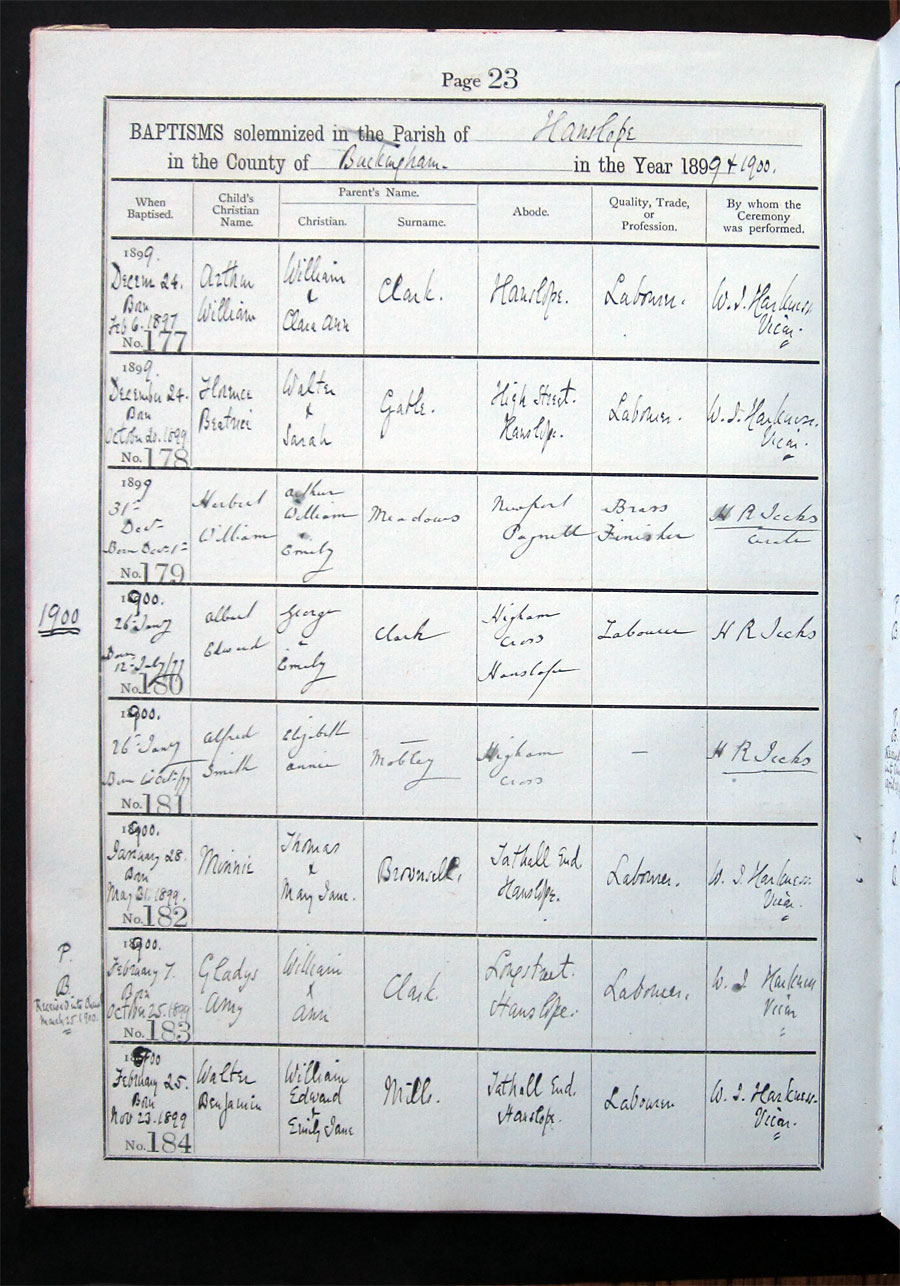 Page 23
BAPTISMS solemnized in the Parish of Hanslope
in the County of Buckingham. in the Year 1899 & 1900.
When Baptised. Child's Christian Name. Parent's Name. Christian. Surname. Abode. Quality, Trade, or Profession. By whom the Ceremony was performed.
1899.
Decem 24. Born Feb 6. 1897 No. 177 Arthur William William & Clara Ann Clark. Hanslope. Labourer. W. J. Harkness Vicar.
1899.
December 24. Born October 20. 1899 No. 178 Florence Beatrice Walter & Sarah Gable. High Street. Hanslope. Labourer. W. J. Harkness. Vicar.
1899
31st Decr Born Decr 1st No. 179 Herbert William Arthur William Emily Meadows Newport Pagnell Brass Finisher H R Jecks Curate
1900
1900.
26th Jany Born 12th July No. 180 Albert Edward George & Emily Clark Higham Cross Hanslope Labourer H R Jecks
1900.
26th Jany Born No. 181 Alfred Smith Elizabeth Annie Mobley Higham Cross — H R Jecks
1900.
January 28. Born May 31. 1899. No. 182 Minnie Thomas & Mary Jane. Brownsell. Tathall End Hanslope. Labourer. W. J. Harkness Vicar.
P.
B.
Received into
March 25. 1900.
1900.
February 7. Born October 25. 1899 No. 183 Gladys Amy William & Ann Clark. Longstreet. Hanslope. Labourer. W. J Harkness Vicar
1900
February 25. Born Nov 23. 1899 No. 184 Walter Benjamin William Edward & Emily Jane Mills. Tathall End. Hanslope. Labourer W. J. Harkness. Vicar.